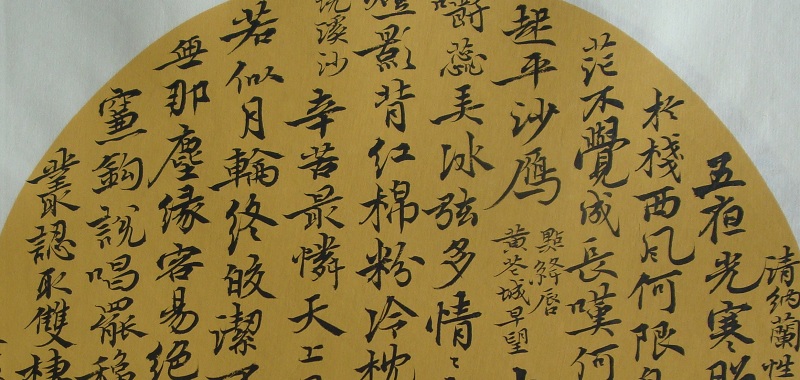 清納蘭性
五夜光寒
於棧西風何限
茫不覺成長嘆何
起平沙雁
點絳唇
黃花城早望
嚼蕊弄冰弦多情
燈影背紅棉粉冷枕
浣溪沙
辛苦最憐天上
若似月輪終皎潔
無那塵緣容易絕
簾鈎說唱罷
叢認取雙棲